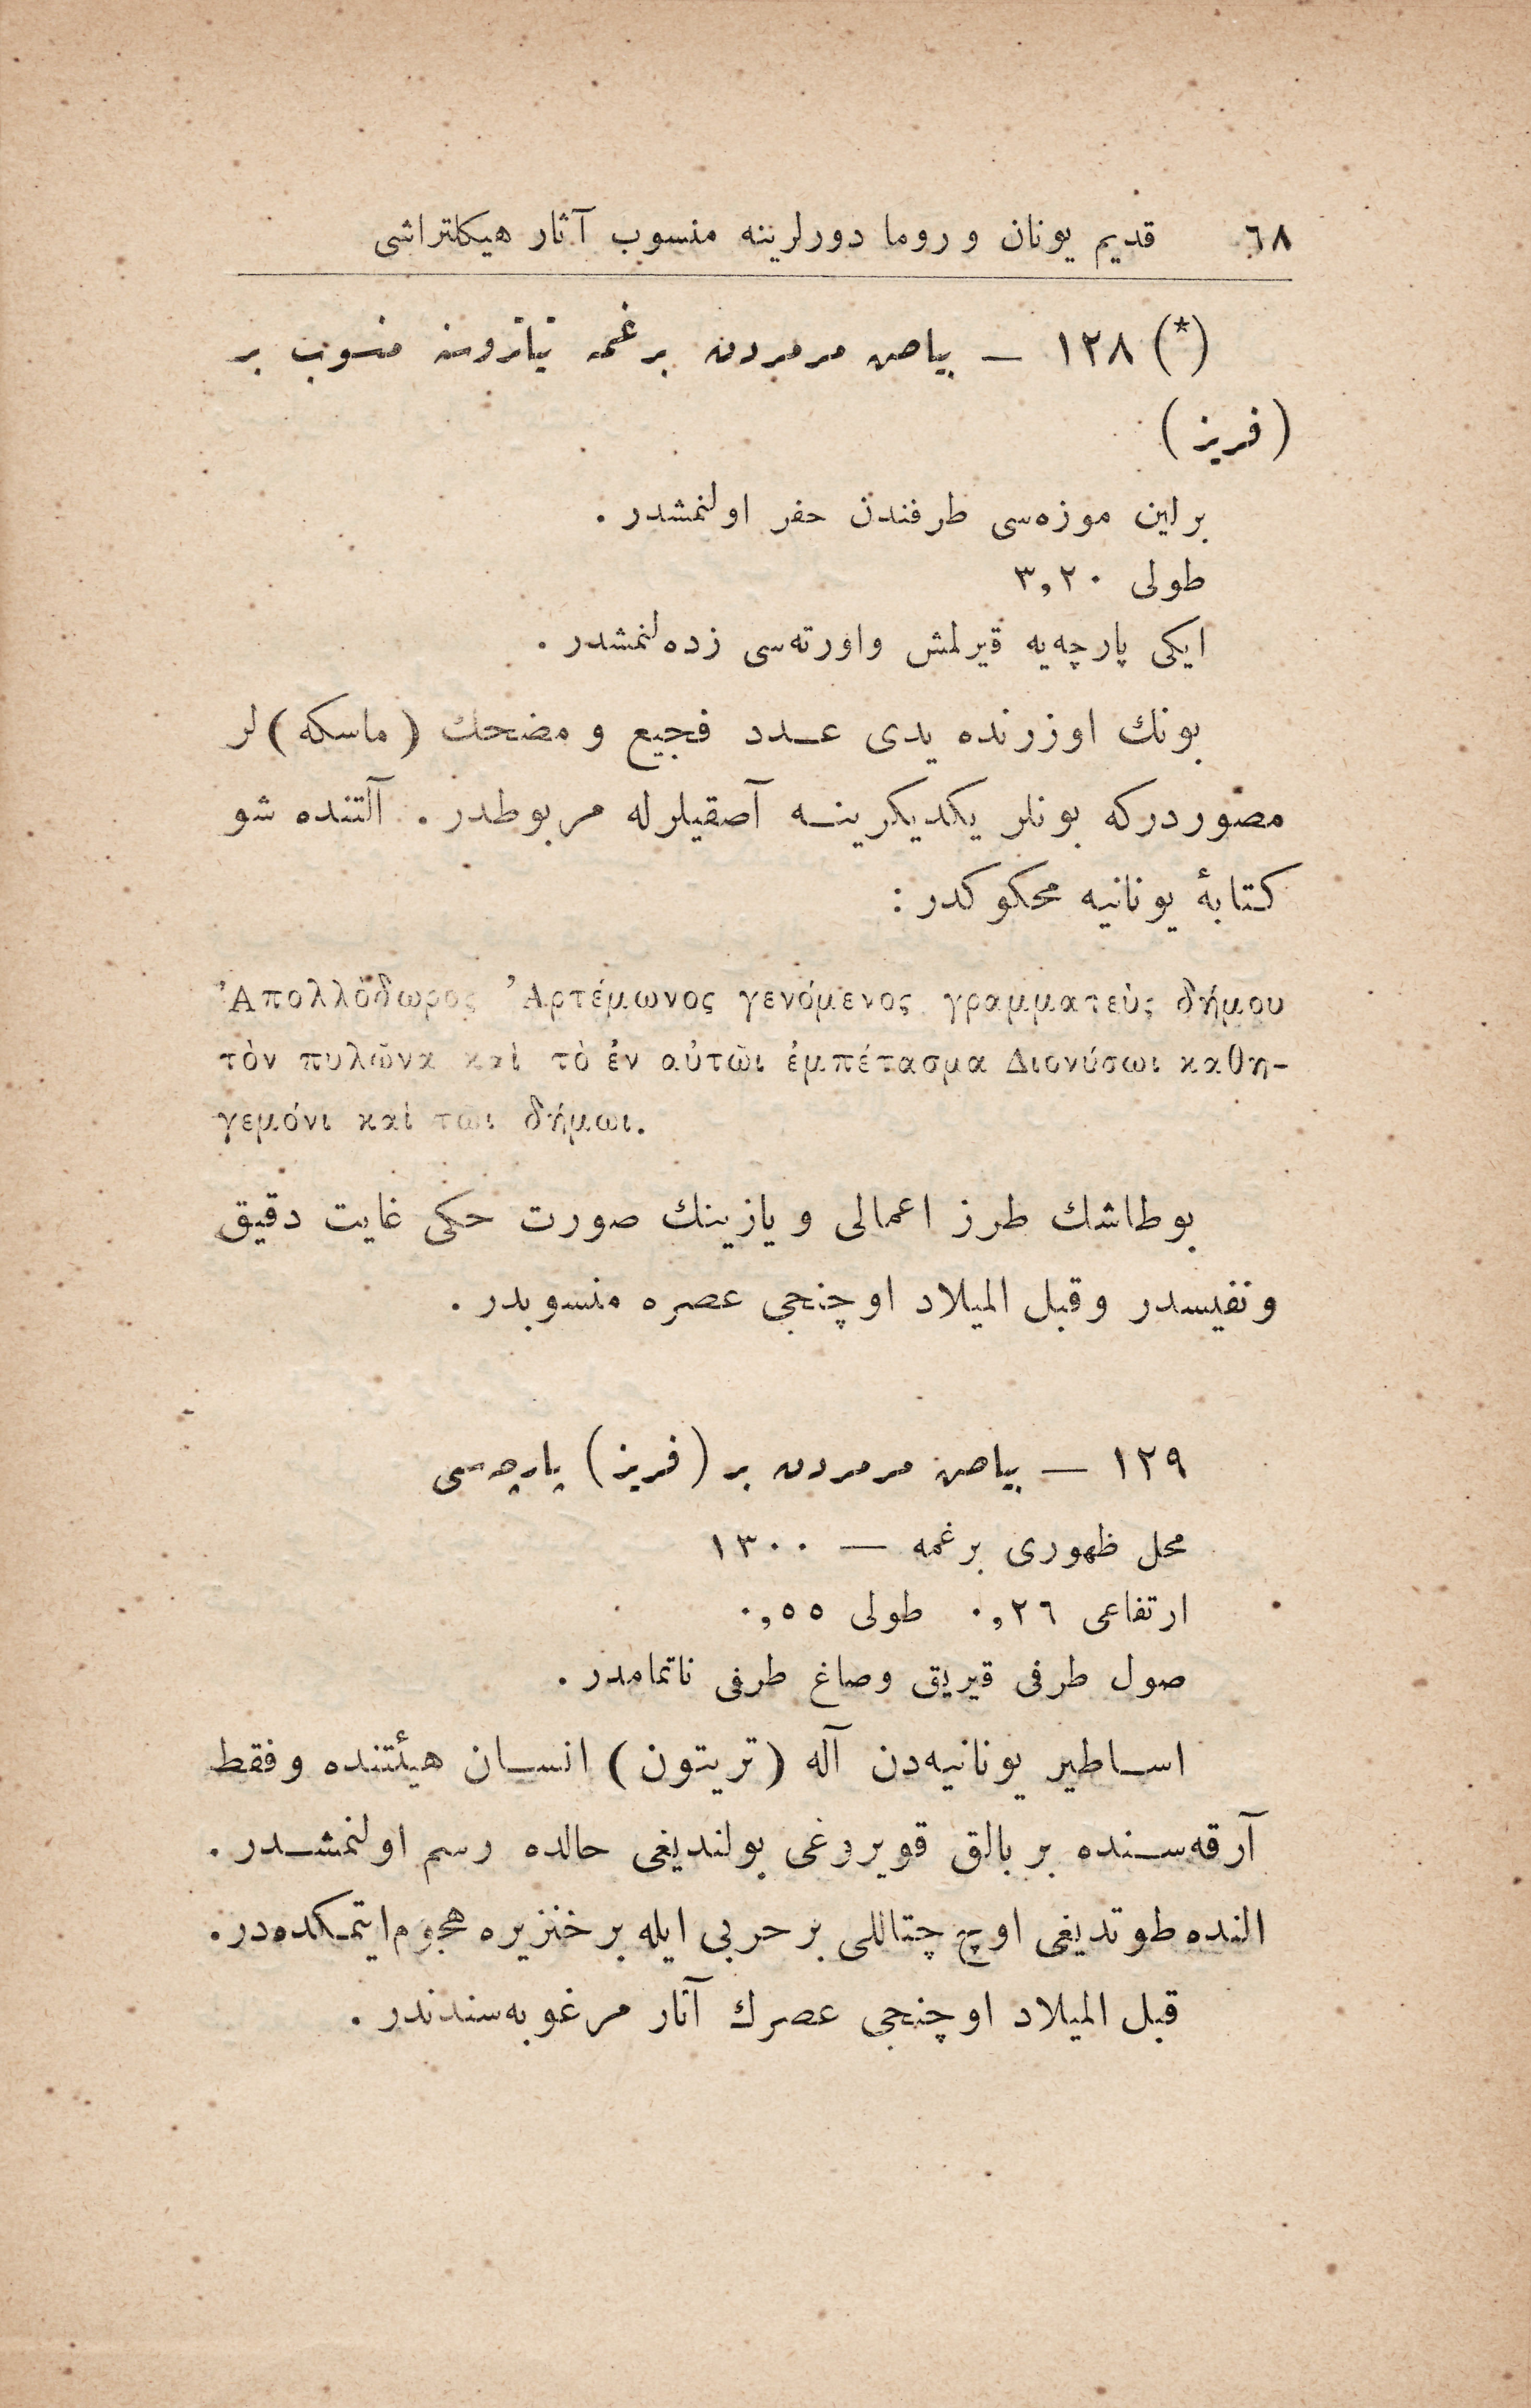 ٦٨ قديم يونان و روما دورلرينه منسوب آثار هيكلتراشى
(*) ١٢٨ — بياض مرمردن برغمه تياتروسنه منسوب بر
(فريز)
برلين موزه‌سى طرفندن حفر اولنمشدر .
طولى ٣,٢٠
ايكى پارچه‌يه قيرلمش واورته‌سى زده‌لنمشدر .
بونك اوزرنده يدى عـدد فجيع و مضحك (ماسكه)لر
مصوردركه بونلر يكديكرينـه آصقيلرله مربوطدر . آلتنده شو
كتابهٔ يونانيه محكوكدر :
Ἀπολλόδωρος Ἀρτέμωνος γενόμενος γραμματεὺς δήμου
τὸν πυλῶνα καὶ τὸ ἐν αὐτῶι ἐμπέτασμα Διονύσωι καθη-
γεμόνι καὶ τῶι δήμωι.
بوطاشك طرز اعمالى و يازينك صورت حكى غايت دقيق
ونفيسدر وقبل الميلاد اوچنجى عصره منسوبدر .
١٢٩ — بياض مرمردن بر (فريز) پارچه‌سى
محل ظهورى برغمه — ١٣٠٠
ارتفاعى ٠,٢٦ طولى ٠,٥٥
صول طرفى قيريق وصاغ طرفى ناتمامدر .
اسـاطير يونانيه‌دن آله (تريتون) انسـان هيئتنده وفقط
آرقه‌سـنده بر بالق قويروغى بولنديغى حالده رسم اولنمشـدر .
النده طوتديغى اوچ چتاللى بر حربى ايله بر خنزيره هجوم‌ايتمكده‌در.
قبل الميلاد اوچنجى عصرك آثار مرغوبه‌سندندر .